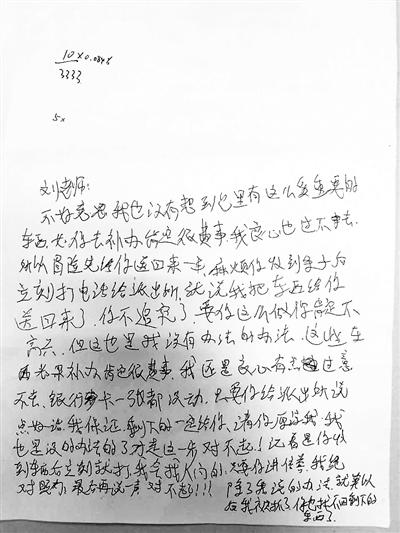 10×0.0848
3333
5×
刘老师:
不好意思我也没有想到包里有这么多重要的
东西 你去补办肯定很费事.我良心也过不去.
所以冒险先给你送回来一半.麻烦你收到东西后
立刻打电话给派出所,就说我把东西给你
送回来了.你不追究了.要你这么做你肯定不
高兴.但这也是我没有办法的办法.这些东
西 补办肯定很费事.我还是良心有点过意
不去.银行卡一张都没动.只要你给派出所说
点好话.我保证.剩下的一定给你.请你原谅我.我
也是没的办法的了才走这一步.对不起!记着是你收
到东西后立刻就打.我会找人问的.只要你讲信誉.我绝
对照办.最后再说一声 对不起!!! 除了我说的办法.就算以
后我被抓了.你也找不回剩下的
东西了.